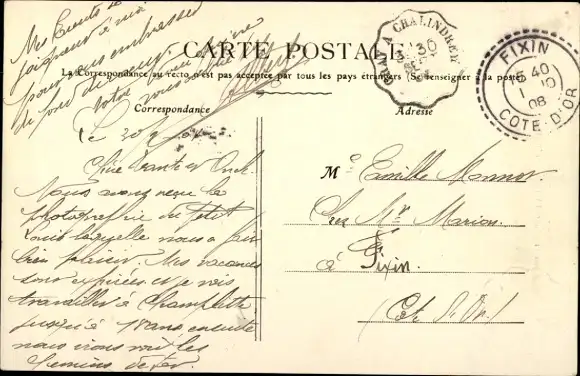 CARTE POSTALE
La Correspondance au recto n'est pas acceptée par tous les pays étrangers (Se renseigner à la poste)
Correspondance
Adresse
A CHALINDREY
FIXIN
16 40
1 10
08
COTE-D'OR
Le 30 9
Chère Tante et Oncle
Nous avons reçu la
photographie du petit
Louis laquelle nous a fait
bien plaisir. Mes vacances
sont expirées et je vais
travailler à Champlitte
jusqu'à 18 ans ensuite
nous irons voir les
chemins de fer.
Mes parents se
joignent à moi
pour vous embrasser
Votre
M
Chez Mr Marion
à Fixin
(Côte d'Or)